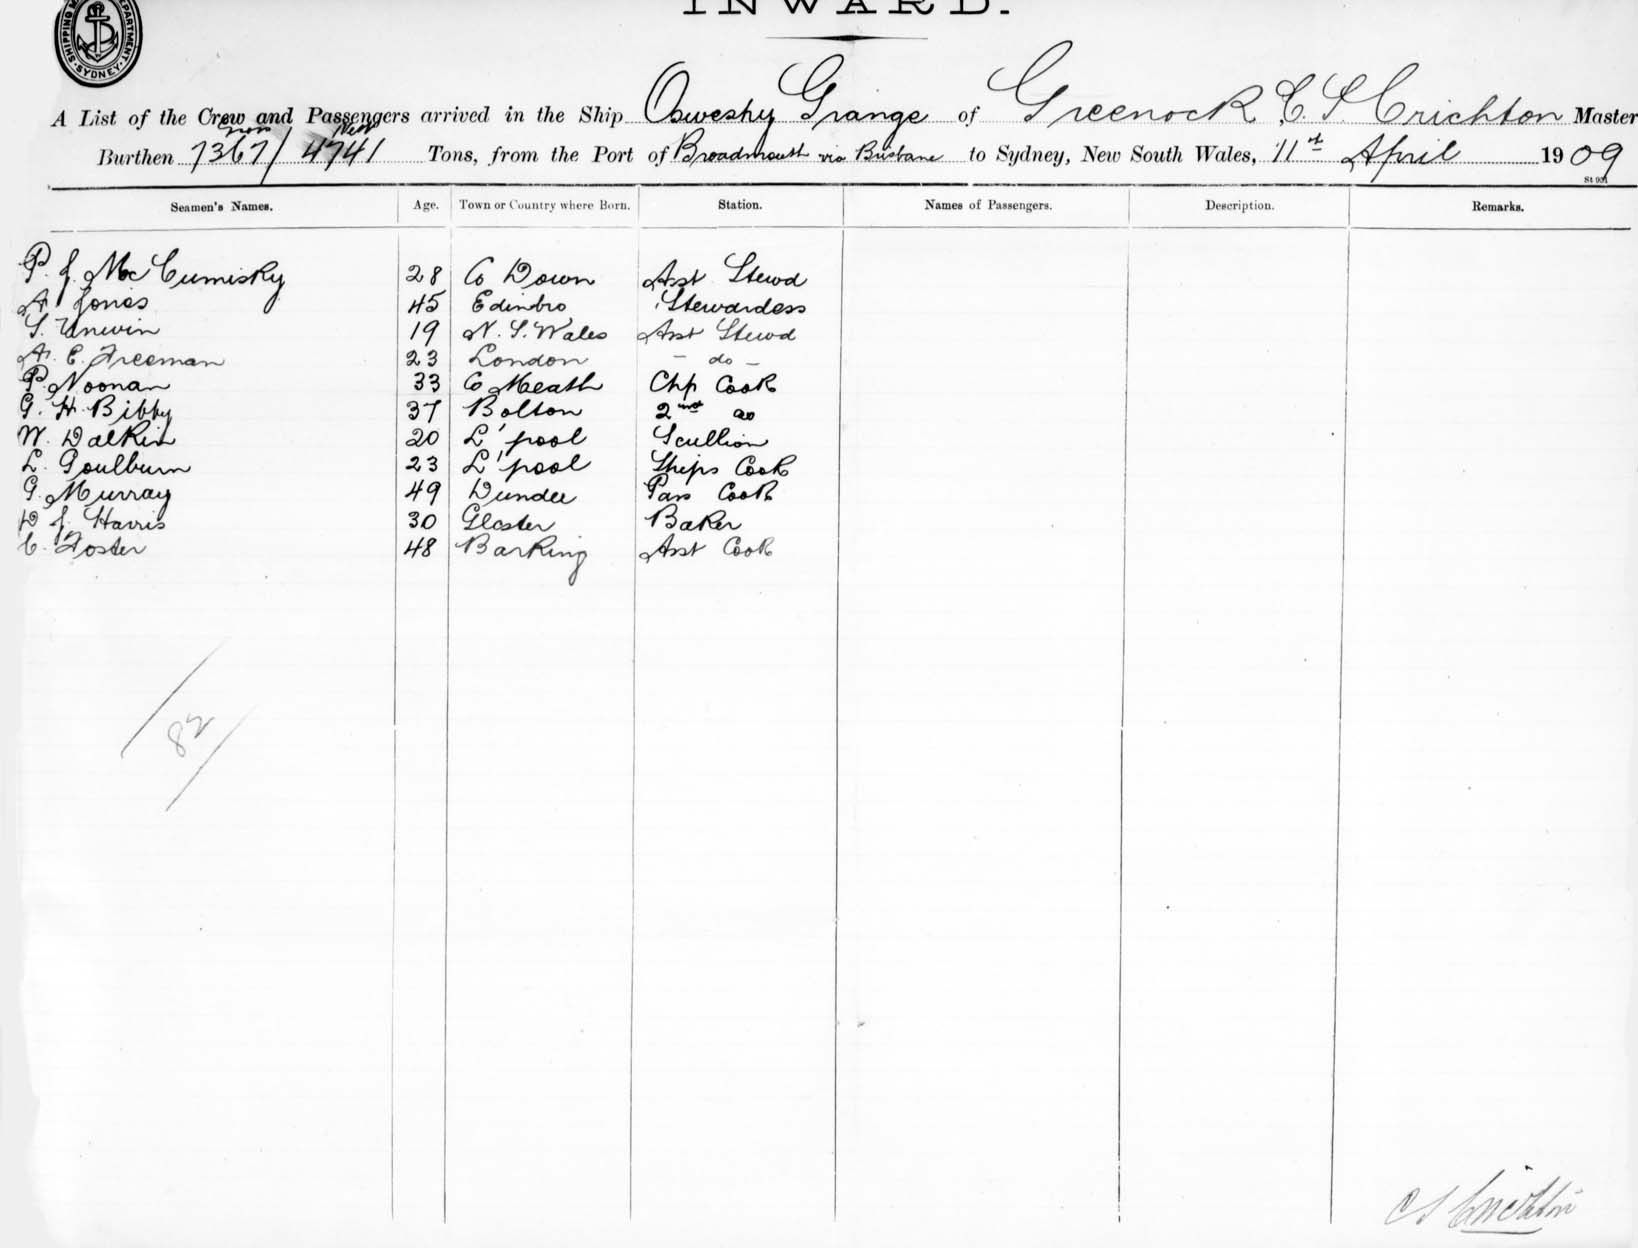 INWARD.
SHIPPING DEPARTMENT. SYDNEY.
A List of the Crew and Passengers arrived in the Ship Oswestry Grange of Greenock, C. S. Crichton Master
Burthen 7367/ 4741 Tons, from the Port of Broadmouth via Brisbane to Sydney, New South Wales, 11th April 1909
Seamen's Names. Age. Town or Country where Born. Station. Names of Passengers. Description. Remarks.
P. J. McCumisky 28 Co Down Asst Stewd
A Jones 45 Edinbro Stewardess
S. Unwin 19 N. S. Wales Asst Stewd
A. E. Freeman 23 London - do -
P. Noonan 33 Co Meath Chf Cook
G. H. Bibby 37 Bolton 2nd do
W. Dalkin 20 L'pool Scullion
L. Goulburn 23 L'pool Ships Cook
G. Murray 49 Dundee Pass Cook
D J. Harris 30 Gloster Baker
C. Foster 48 Barking Asst Cook
82
C S Crichton